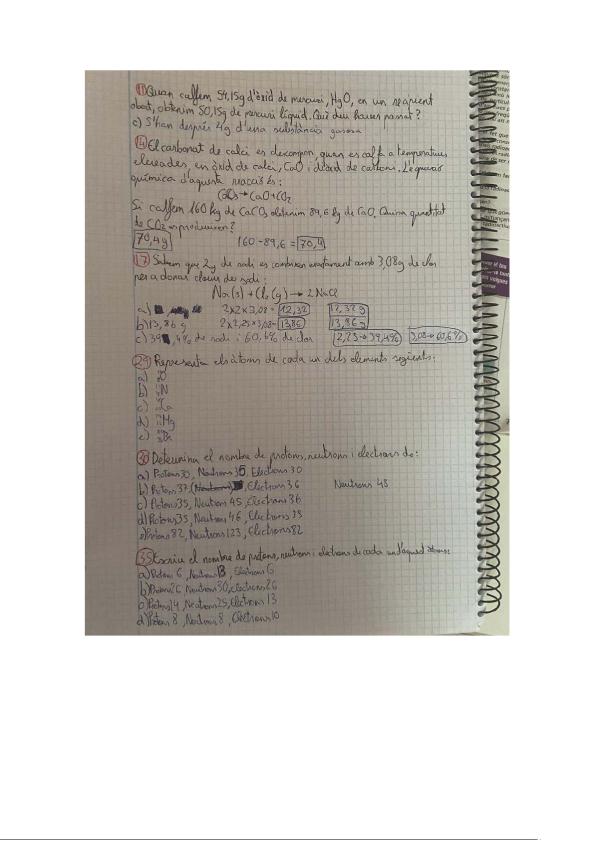 11 Quan calfem 54,15g d'òxid de mercuri, HgO, en un recipient
obert, obtenim 50,15g de mercuri líquid. Què deu haver passat?
c) S'han després 4g d'una substància gasosa
14 El carbonat de calci es descompon, quan es calfa a temperatures
elevades, en òxid de calci, CaO i diòxid de carboni. L'equació
química d'aquesta reacció és:
CaCO3 → CaO+CO2
Si calfem 160 kg de CaCO3 obtenim 89,6 kg de CaO. Quina quantitat
de CO2 es produirà?
70,4g 160-89,6 = 70,4
17 Sabem que 2g de sodi es combinen exactament amb 3,08g de clor
per a donar clorur de sodi:
Na(s) + Cl2(g) → 2NaCl
a) 2x2x3,08= 12,32 12,32g
b) 13,86g 2x2,25x3,08= 13,86 13,86g
c) 39,4% de sodi i 60,6% de clor 2,25→39,4% 3,08→60,6%
29 Representa els àtoms de cada un dels elements següents:
a) O
b) N
c) Ca
d) Mg
e) Br
30 Determina el nombre de protons, neutrons i electrons de:
a) Protons 30, Neutrons 35, Electrons 30
b) Protons 37, Electrons 36 Neutrons 48
c) Protons 35, Neutrons 45, Electrons 36
d) Protons 35, Neutrons 46, Electrons 35
e) Protons 82, Neutrons 123, Electrons 82
35 Escriu el nombre de protons, neutrons i electrons de cada un d'aquests àtoms
a) Protons 6, Neutrons 8, Electrons 6
b) Protons 26, Neutrons 30, Electrons 26
c) Protons 14, Neutrons 25, Electrons 13
d) Protons 8, Neutrons 8, Electrons 10